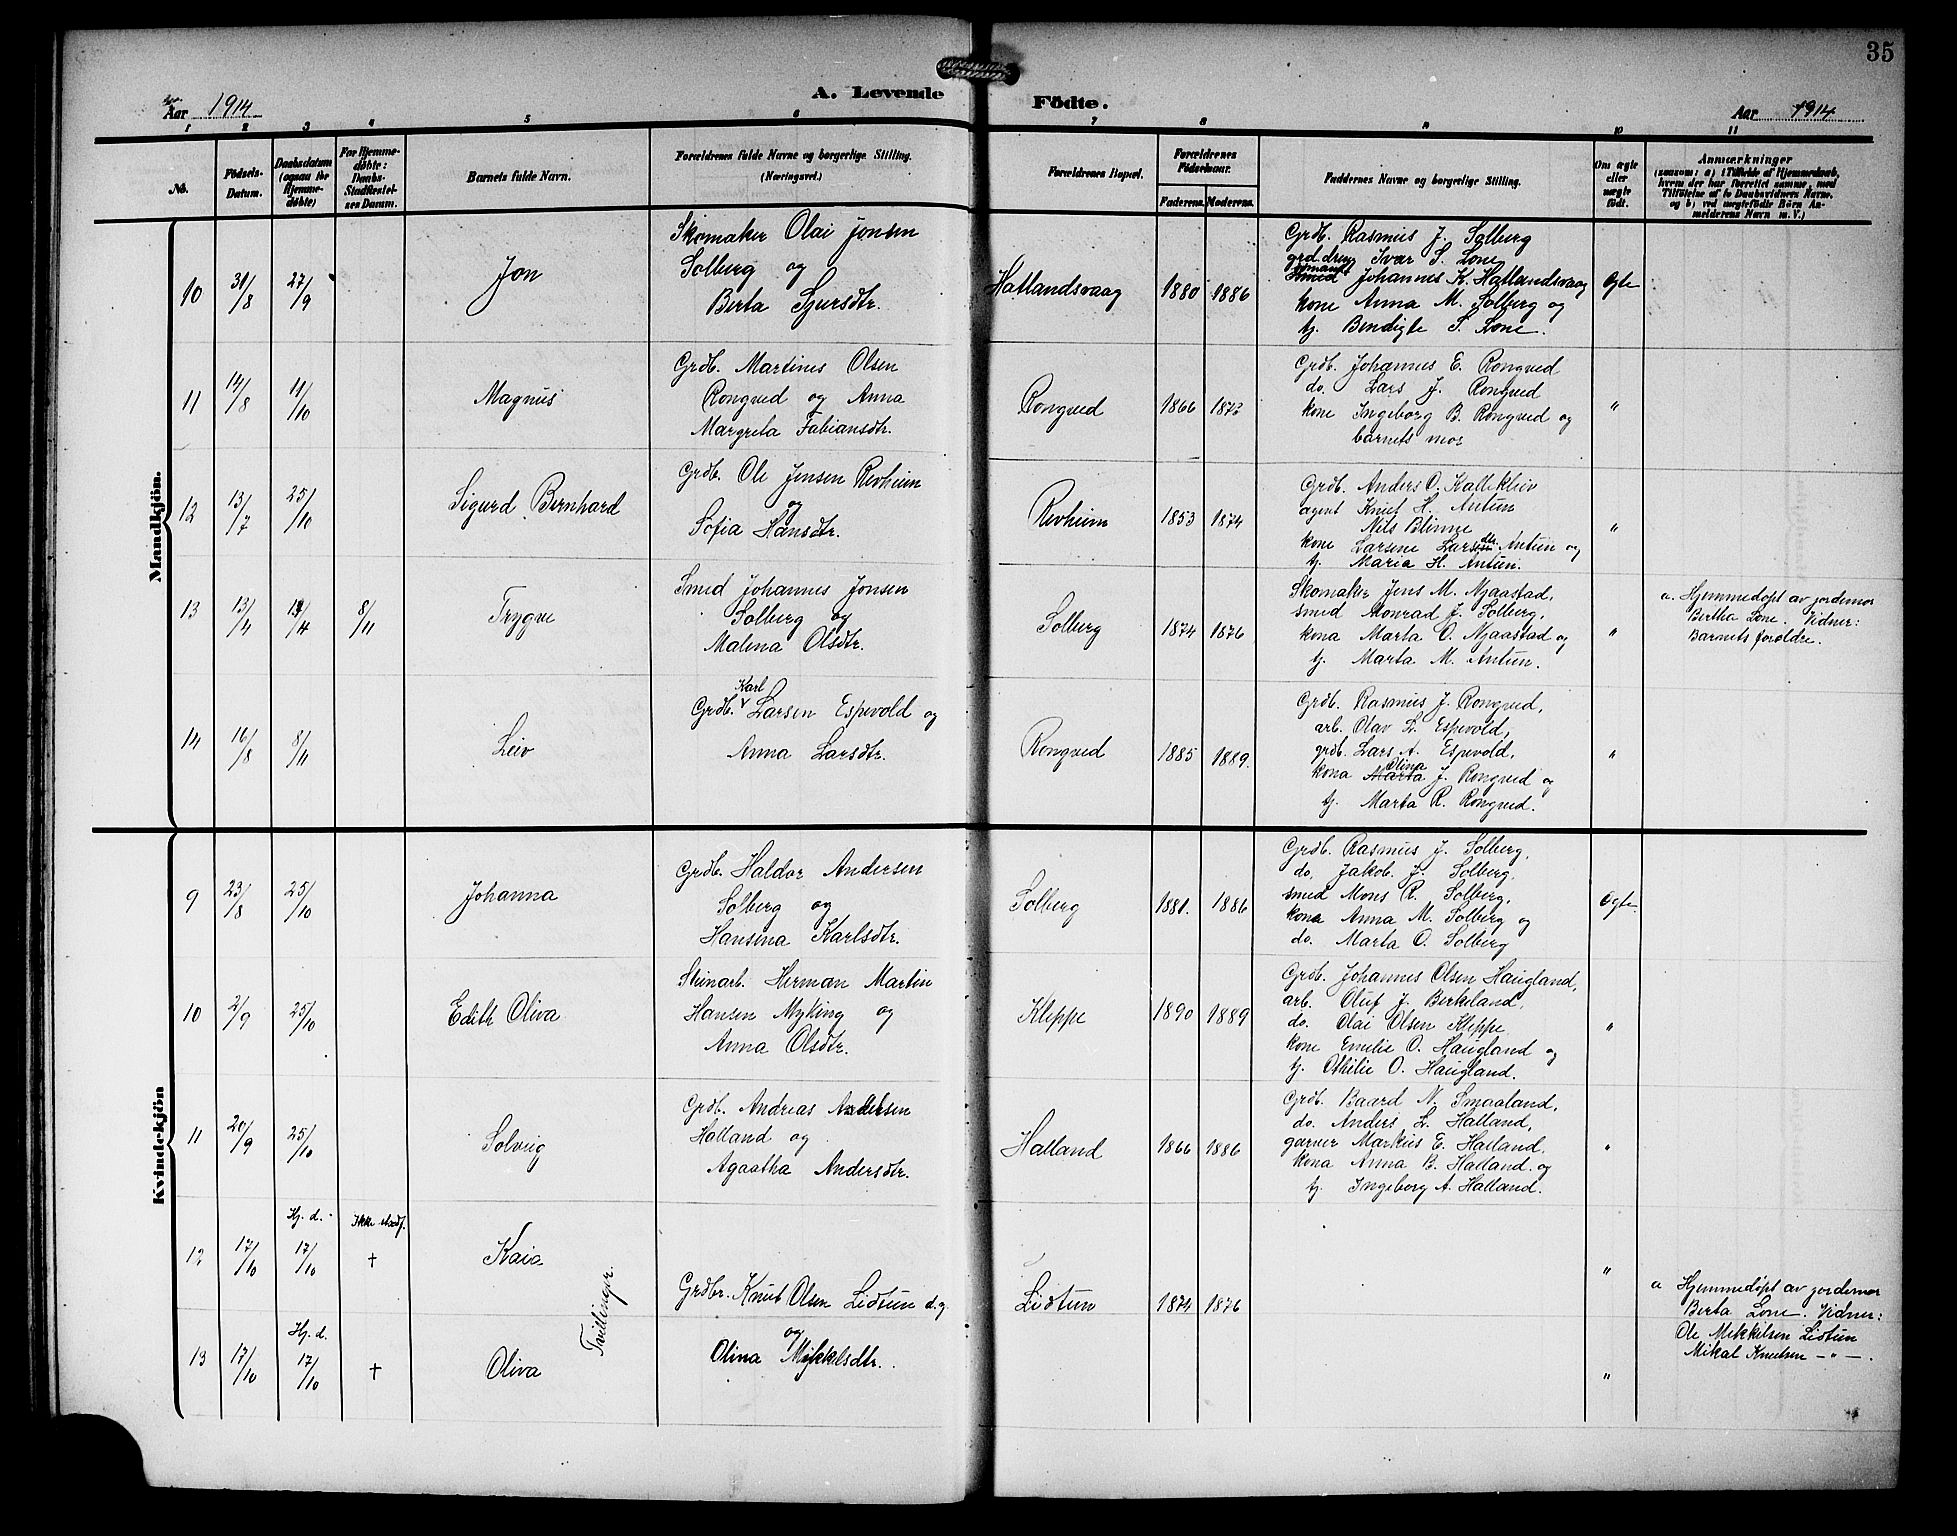 35
A. Levende Födte.
Aar 1914
Aar 1914
1 2 3 4 5 6 7 8 9 10 11
No.
Födsels-Datum.
Daabsdatum (ogsaa for Hjemme-døbte)
For Hjemme-døbte: Daabs-Stadfæstel-ses Datum.
Barnets fulde Navn.
Forældrenes fulde Navne og borgerlige Stilling.
(Næringsvei.)
Forældrenes Bopæl.
Forældrenes Födselsaar.
Faderens. Moderens.
Faddernes Navne og borgerlige Stilling.
Om ægte eller uægte födt.
Anmærkninger
(saasom: a) i Tilfælde af Hjemmedaab, hvem der har forrettet samme, med Tilföielse af to Daabsvidners Navne, og b) ved uægtefödte Börn Anmelderens Navn m. V.)
Mandkjön.
10 31/8 27/9 Jon
Skomaker Olai Jonsen
Solberg og
Berta Sjursdtr.
Hatlandsvaag 1880 1886
Grdb. Rasmus J. Solberg
grd.dreng Ivar S. Lone
Johannes K. Hatlandsvaag
kone Anna M. Solberg og
tj. Bendigte S. Lone.
Ægte
11 14/8 11/10 Magnus
Grdb. Martines Olsen
Rongved og Anna
Margreta Fabiansdtr.
Rongved 1866 1873
Grdb. Johannes E. Rongved
do. Lars J. Rongved
kone Ingeborg B. Rongved og
barnets mor
"
12 13/7 25/10 Sigurd Bernhard
Grdb. Ole Jensen Revheim
og
Sofia Hansdtr.
Revheim 1853 1874
Grdb. Anders O. Kalleklev
agent Knut H. Antun
Nils Blinne
kone Larsine Larsdtr. Antun og
tj. Maria H. Antun.
"
13 13/4 /4 8/11 Trygve
Smed Johannes Jonsen
Solberg og
Malena Olsdtr.
Solberg 1874 1876
Skomaker Jens M. Mjaastad,
smed Konrad J. Solberg,
kona Marta O. Mjaastad og
tj. Marta M. Antun.
"
a. Hjemmedøpt av jordemor
Bertha Lone. Vidner:
Barnets forældre.
14 16/8 8/11 Leiv
Karl
Grdb. V Larsen Espevold og
Anna Larsdtr.
Rongved 1885 1889.
Grdb. Rasmus J. Rongved,
arb. Olav L. Espevold,
grdb. Lars A. Espevold,
Olina
kona Marta J. Rongved og
tj. Marta R. Rongved.
"
Kvindekjön
9 23/8 25/10 Johanna
Grdb. Haldor Andersen
Solberg og
Hansina Karlsdtr.
Solberg 1881. 1886
Grdb. Rasmus J. Solberg,
do. Jakob. J. Solberg,
smed Mons R. Solberg,
kona Anna M. Solberg og
do. Marta O. Solberg
Ægte.
10 2/9 25/10 Edith Oliva
Stenarb. Herman Martin
Hansen Myking og
Anna Olsdtr.
Kleppe 1890 1889
Grdb. Johannes Olsen Haugland,
arb. Oluf J. Birkeland,
do. Olai Olsen Kleppe,
kone Emelie O. Haugland og
tj. Othilie O. Haugland.
"
11 20/9 25/10 Solveig
Grdb. Andreas Andersen
Hatland og
Agaatha Andersdtr.
Hatland 1866 1886
Grdb. Baard N. Smaaland,
do. Anders L. Hatland,
garver Markus E. Hatland,
kona Anna B. Hatland og
tj. Ingeborg A. Hatland.
"
Hj. d. Ikke stadf.
12 17/10 17/10 † Kaia
Tvillinger.
Grdbr. Knut Olsen Lidtun d.y.
og
Olina Mikkelsdtr.
Lidtun 1874 1876
"
a Hjemmedøpt av jordemor
Berta Lone. Vidner:
Ole Mikkelsen Lidtun
Mikal Knutsen — " —.
Hj. d.
13 17/10 17/10 † Oliva
"